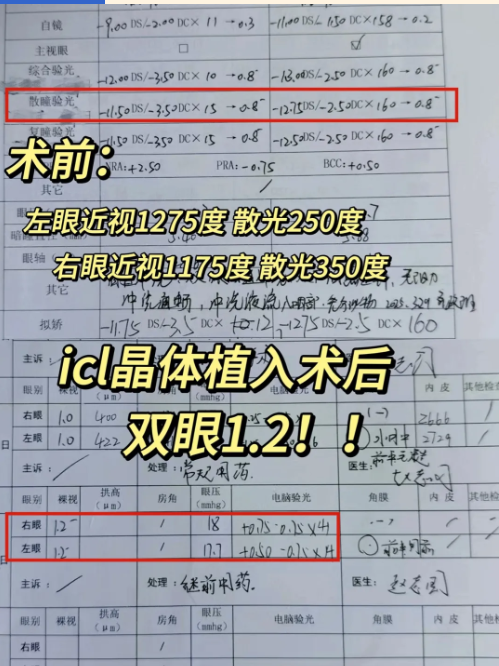 自镜 -9.00 DS/-2.00 DC× 11 → 0.3 -11.00 DS/ 1.50 DC×158 → 0.2
主视眼 □ ☑
综合验光 -12.00 DS/-3.50 DC× 10 → 0.8⁻ -13.00 DS/-2.50 DC×160 → 0.8⁻
散瞳验光 -11.50 DS/-3.50 DC× 15 → 0.8⁻ -12.75 DS/-2.50 DC×160 → 0.8⁻
复瞳验光 -11.50 DS/-3.50 DC× 15 → 0.8⁻ -12.50 DS/-2.50 DC×160 → 0.8⁻
NRA:+2.50 PRA:-0.75 BCC:+0.50
术前：
其它 /
左眼近视1275度 散光250度
右眼近视1175度 散光350度
眼轴
其它
拟矫 -11.75 DS/-3.5 DC ×12 -12.75 DS/-2.5 DC ×160
icl晶体植入术后
主诉： 医生：
眼别 内皮 其他检查
双眼1.2！！
右眼 1.0 400 (-) 2666 /
左眼 1.0 422 2729 /
主诉： 处理：常规用药 医生：
眼别 裸视 拱高（μm） 房角 眼压（mmhg） 电脑验光 角膜 内皮 其他检查
右眼 1.2⁻ / 18 +0.75-0.75×41
左眼 1.2⁻ / 17.7 +0.50-0.75×14
主诉： 处理：继前用药. 医生：
眼别 裸视 拱高（μm） 房角 眼压（mmhg） 电脑验光 角膜 内皮 其他检查
右眼 /